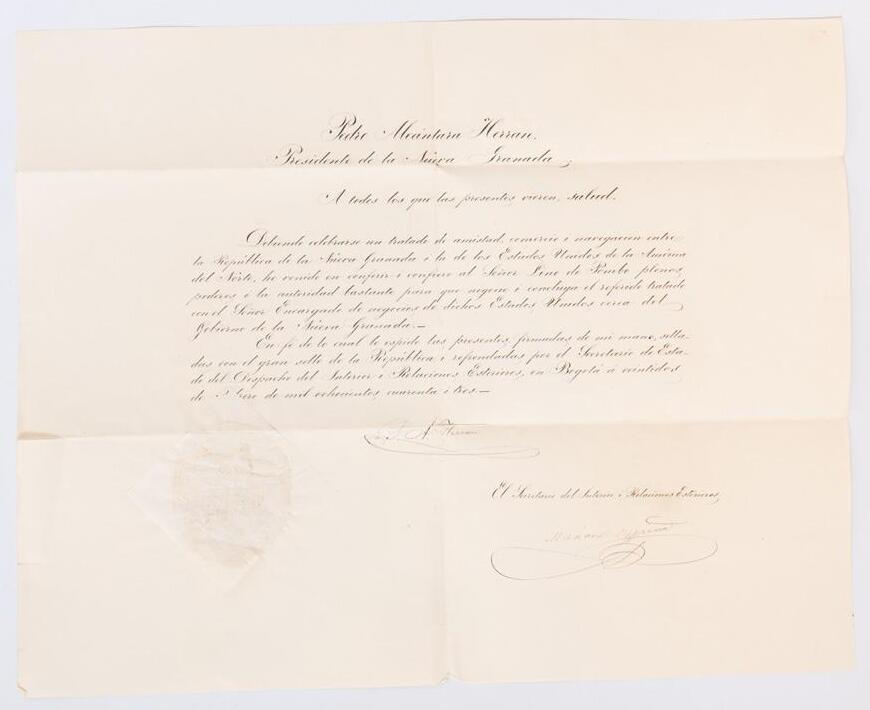 Pedro Alcántara Herran,
Presidente de la Nueva Granada,
A todos los que las presentes vieren, salud.
Debiendo celebrarse un tratado de amistad, comercio i navegacion entre
la República de la Nueva Granada i la de los Estados Unidos de la América
del Norte, he venido en conferir i confiero al Señor Lino de Pombo plenos
poderes i la autoridad bastante para que negocie i concluya el referido tratado
con el Señor Encargado de negocios de dichos Estados Unidos cerca del
Gobierno de la Nueva Granada.—
En fé de lo cual le espido las presentes, firmadas de mi mano, sella-
das con el gran sello de la República i refrendadas por el Secretario de Esta-
do del Despacho del Interior i Relaciones Esteriores, en Bogotá á veintidos
de mil ochocientos cuarenta i tres—
P. A. Herran
El Secretario del Interior i Relaciones Esteriores,
Mariano Ospina